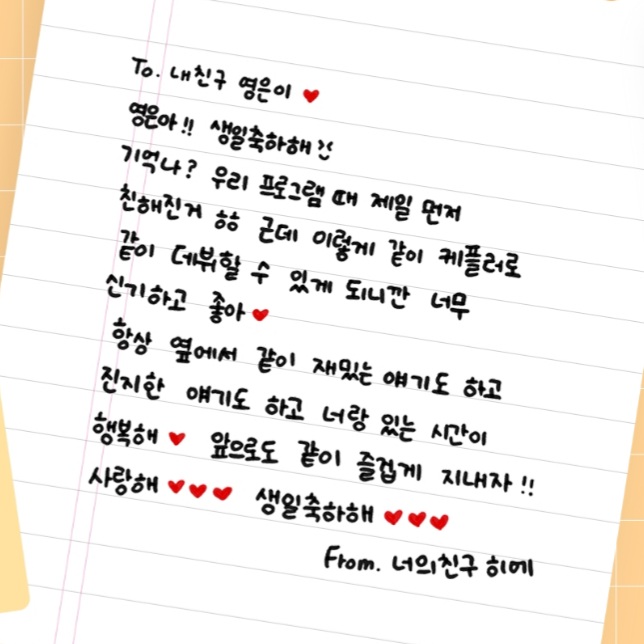 To. 내친구 영은이 ♥
영은아!! 생일축하해
기억나? 우리 프로그램 때 제일 먼저
친해진거 ㅎㅎ 근데 이렇게 같이 케플러로
같이 데뷔할 수 있게 되니깐 너무
신기하고 좋아 ♥
항상 옆에서 같이 재밌는 얘기도 하고
진지한 얘기도 하고 너랑 있는 시간이
행복해 ♥ 앞으로도 같이 즐겁게 지내자!!
사랑해 ♥♥♥ 생일축하해 ♥♥♥
From. 너의친구 히에